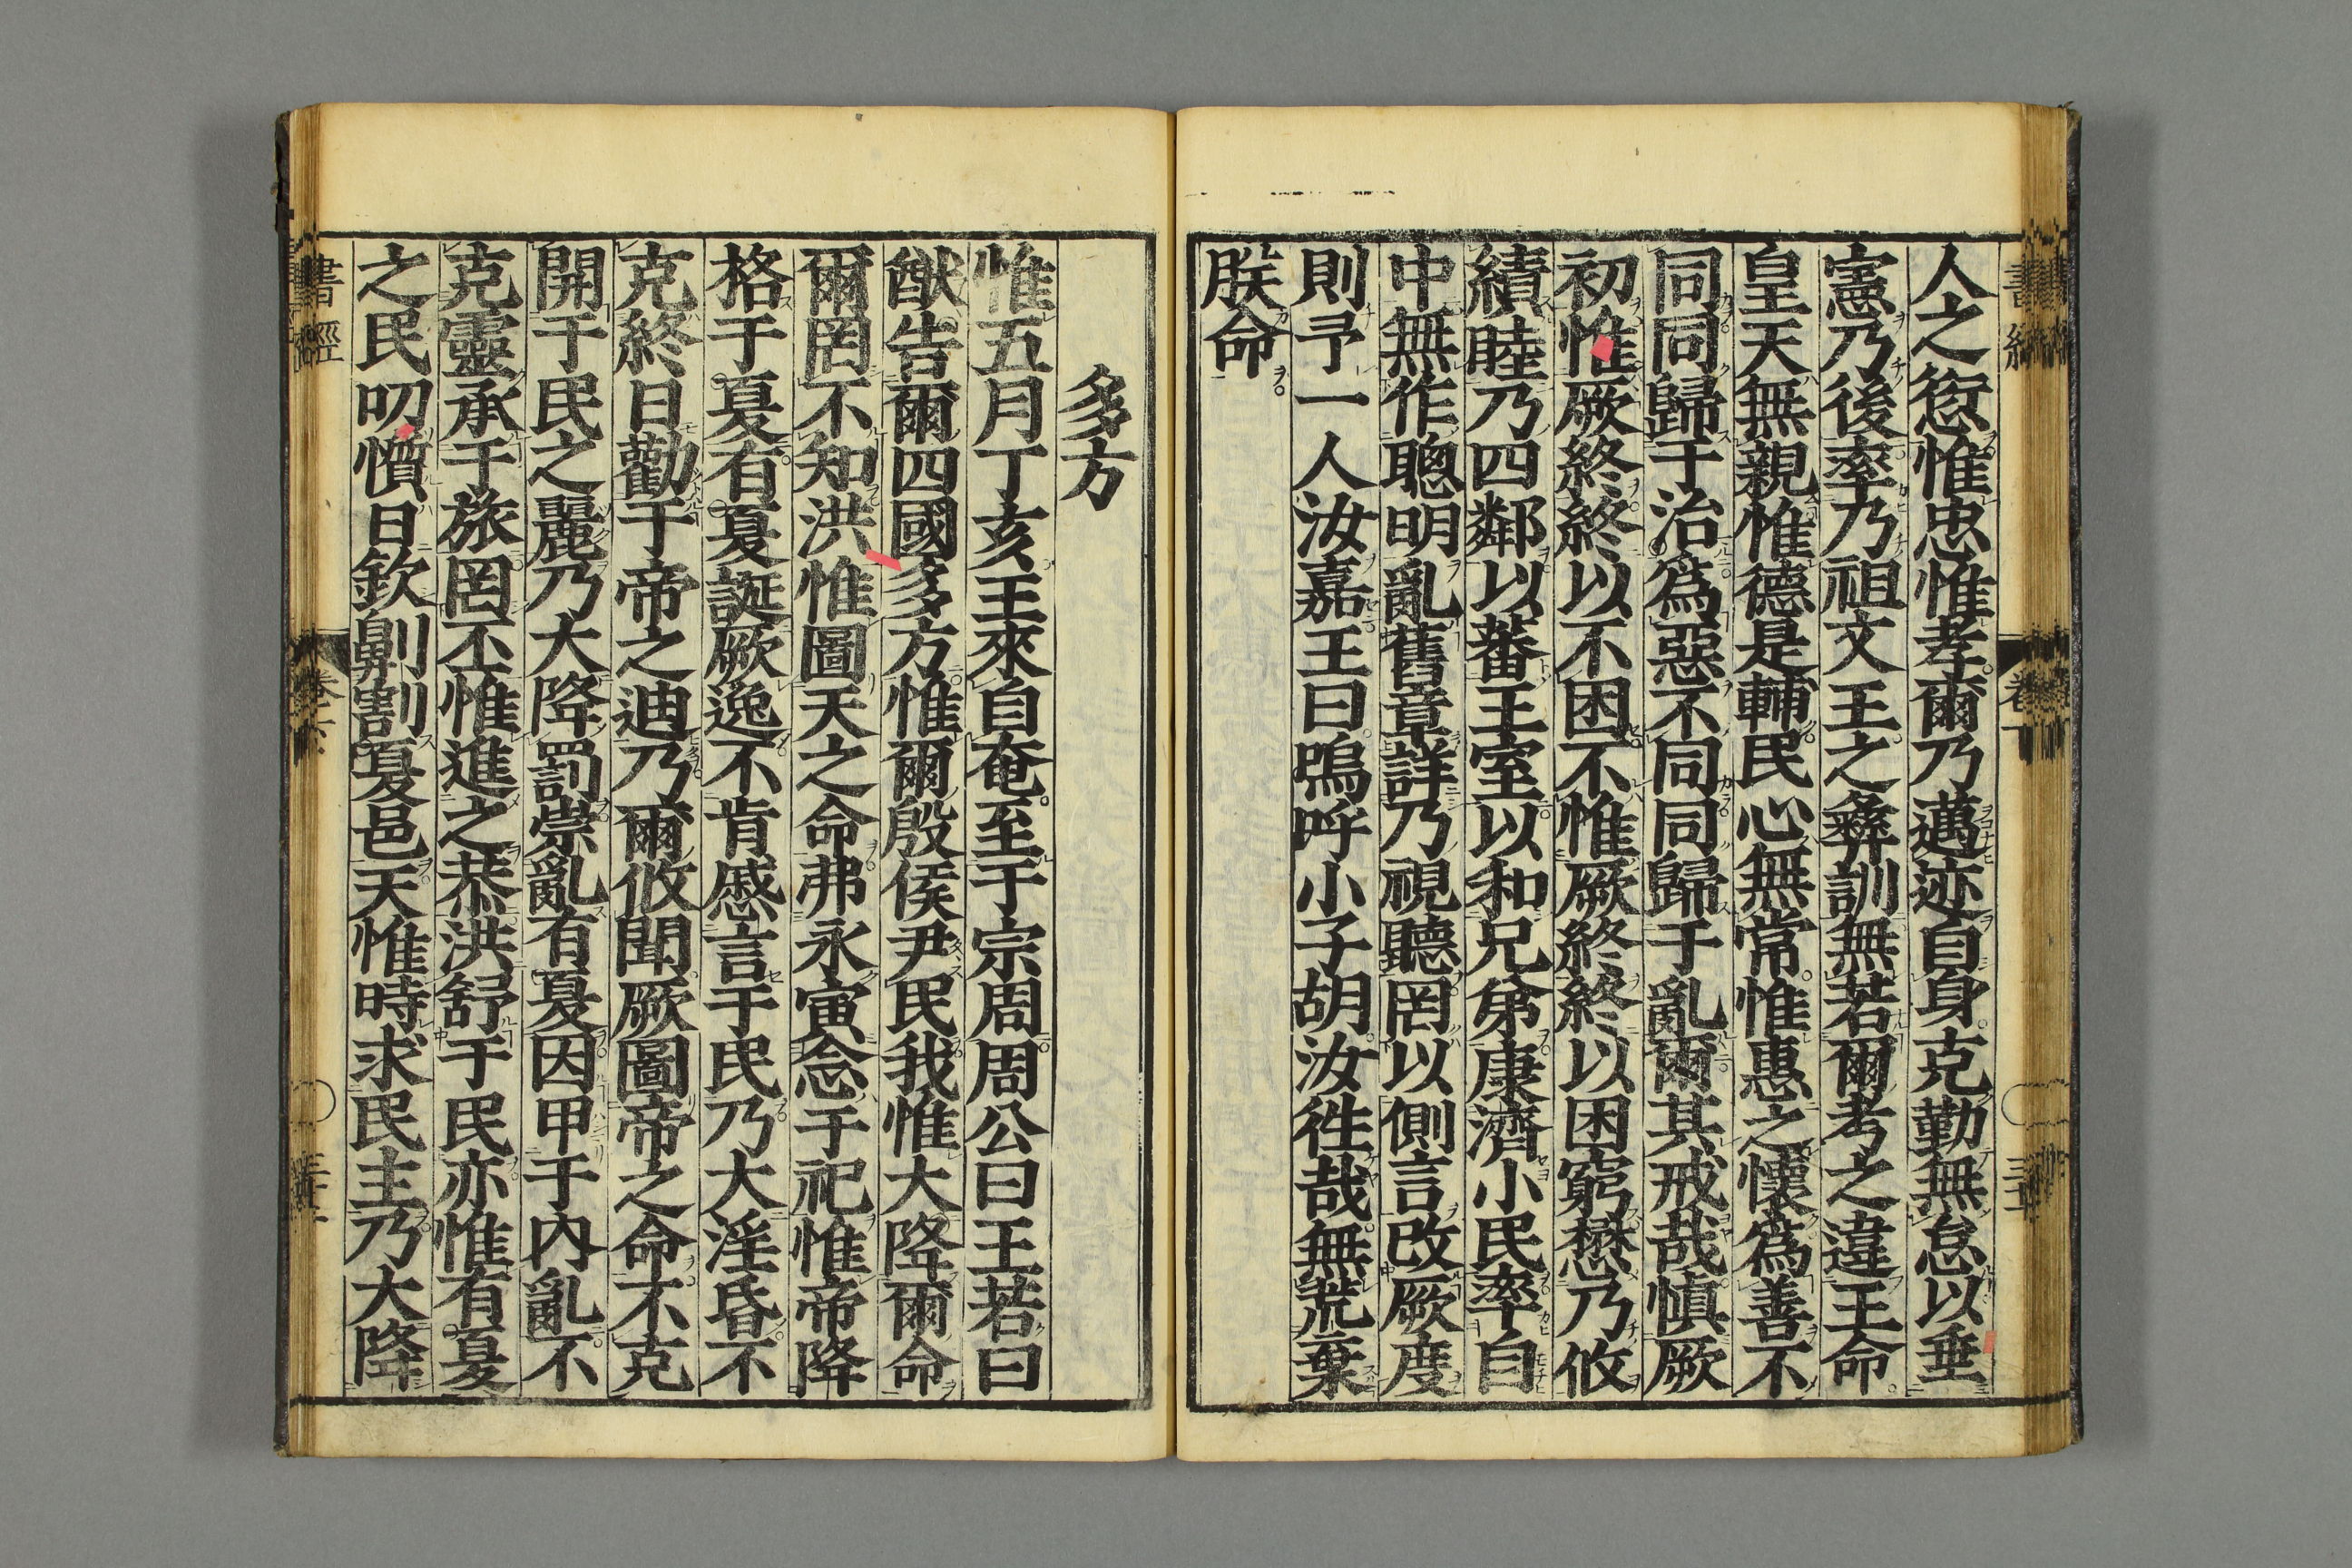 人之愆惟忠惟孝爾乃邁迹自身克勤無怠以垂
憲乃後率乃祖文王之彝訓無若爾考之違王命
皇天無親惟德是輔民心無常惟惠之懷爲善不
同同歸于治爲惡不同同歸于亂爾其戒哉慎厥
初惟厥終終以不困不惟厥終終以困窮懋乃攸
績睦乃四鄰以蕃王室以和兄弟康濟小民率自
中無作聰明亂舊章詳乃視聽罔以側言改厥度
則予一人汝嘉王曰嗚呼小子胡汝徃哉無荒棄
朕命
多方
惟五月丁亥王來自奄至于宗周周公曰王若曰
猷告爾四國多方惟爾殷侯尹民我惟大降爾命
爾罔不知洪惟圖天之命弗永寅念于祀惟帝降
格于夏有夏誕厥逸不肯慼言于民乃大淫昏不
克終日勸于帝之迪乃爾攸聞厥圖帝之命不克
開于民之麗乃大降罰崇亂有夏因甲于內亂不
克靈承于旅罔丕惟進之恭洪舒于民亦惟有夏
之民叨懫日欽劓割夏邑天惟時求民主乃大降
書經
卷六